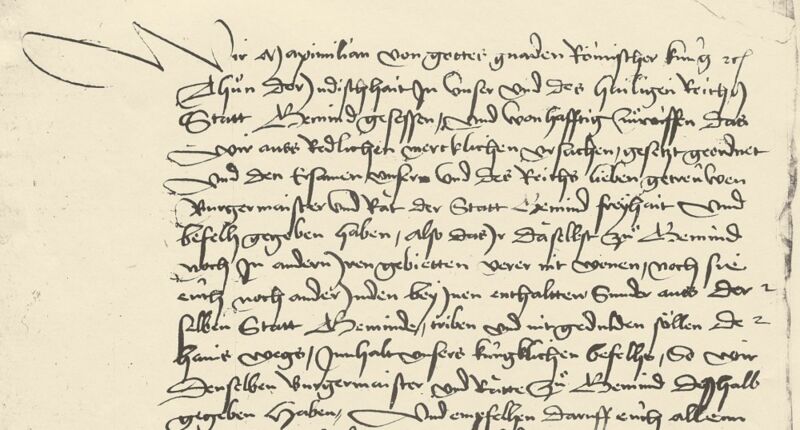 Wir Maximilian von gottes gnaden Römischer kunig etc
Thun der Judischhait In unser und des hailigen Reichs
Statt Gemind gesessen, und wonhafftig zuwissen das
wir auss Redlichen mercklichen ursachen, gesetzt geordnet
und den Ersamen unsern und des Reichs lieben getrewen
Burgermaister und Rat der Statt Gemind freyhait und
befelh gegeben haben, also das Ir daselbst zu Gemind
noch In andern Iren gebietten verer nit wonen, noch sie
euch noch ander Juden bey Inen enthaltten Sunder auss der
selben Statt Geminde, triben und nit gedulden söllen de
hains wegs, Innhalt unsers kunglichen befelhs, So wir
denselben Burgermaister und Ratte zu Gemind desshalb
gegeben haben, Und empfelhen daruff euch allem